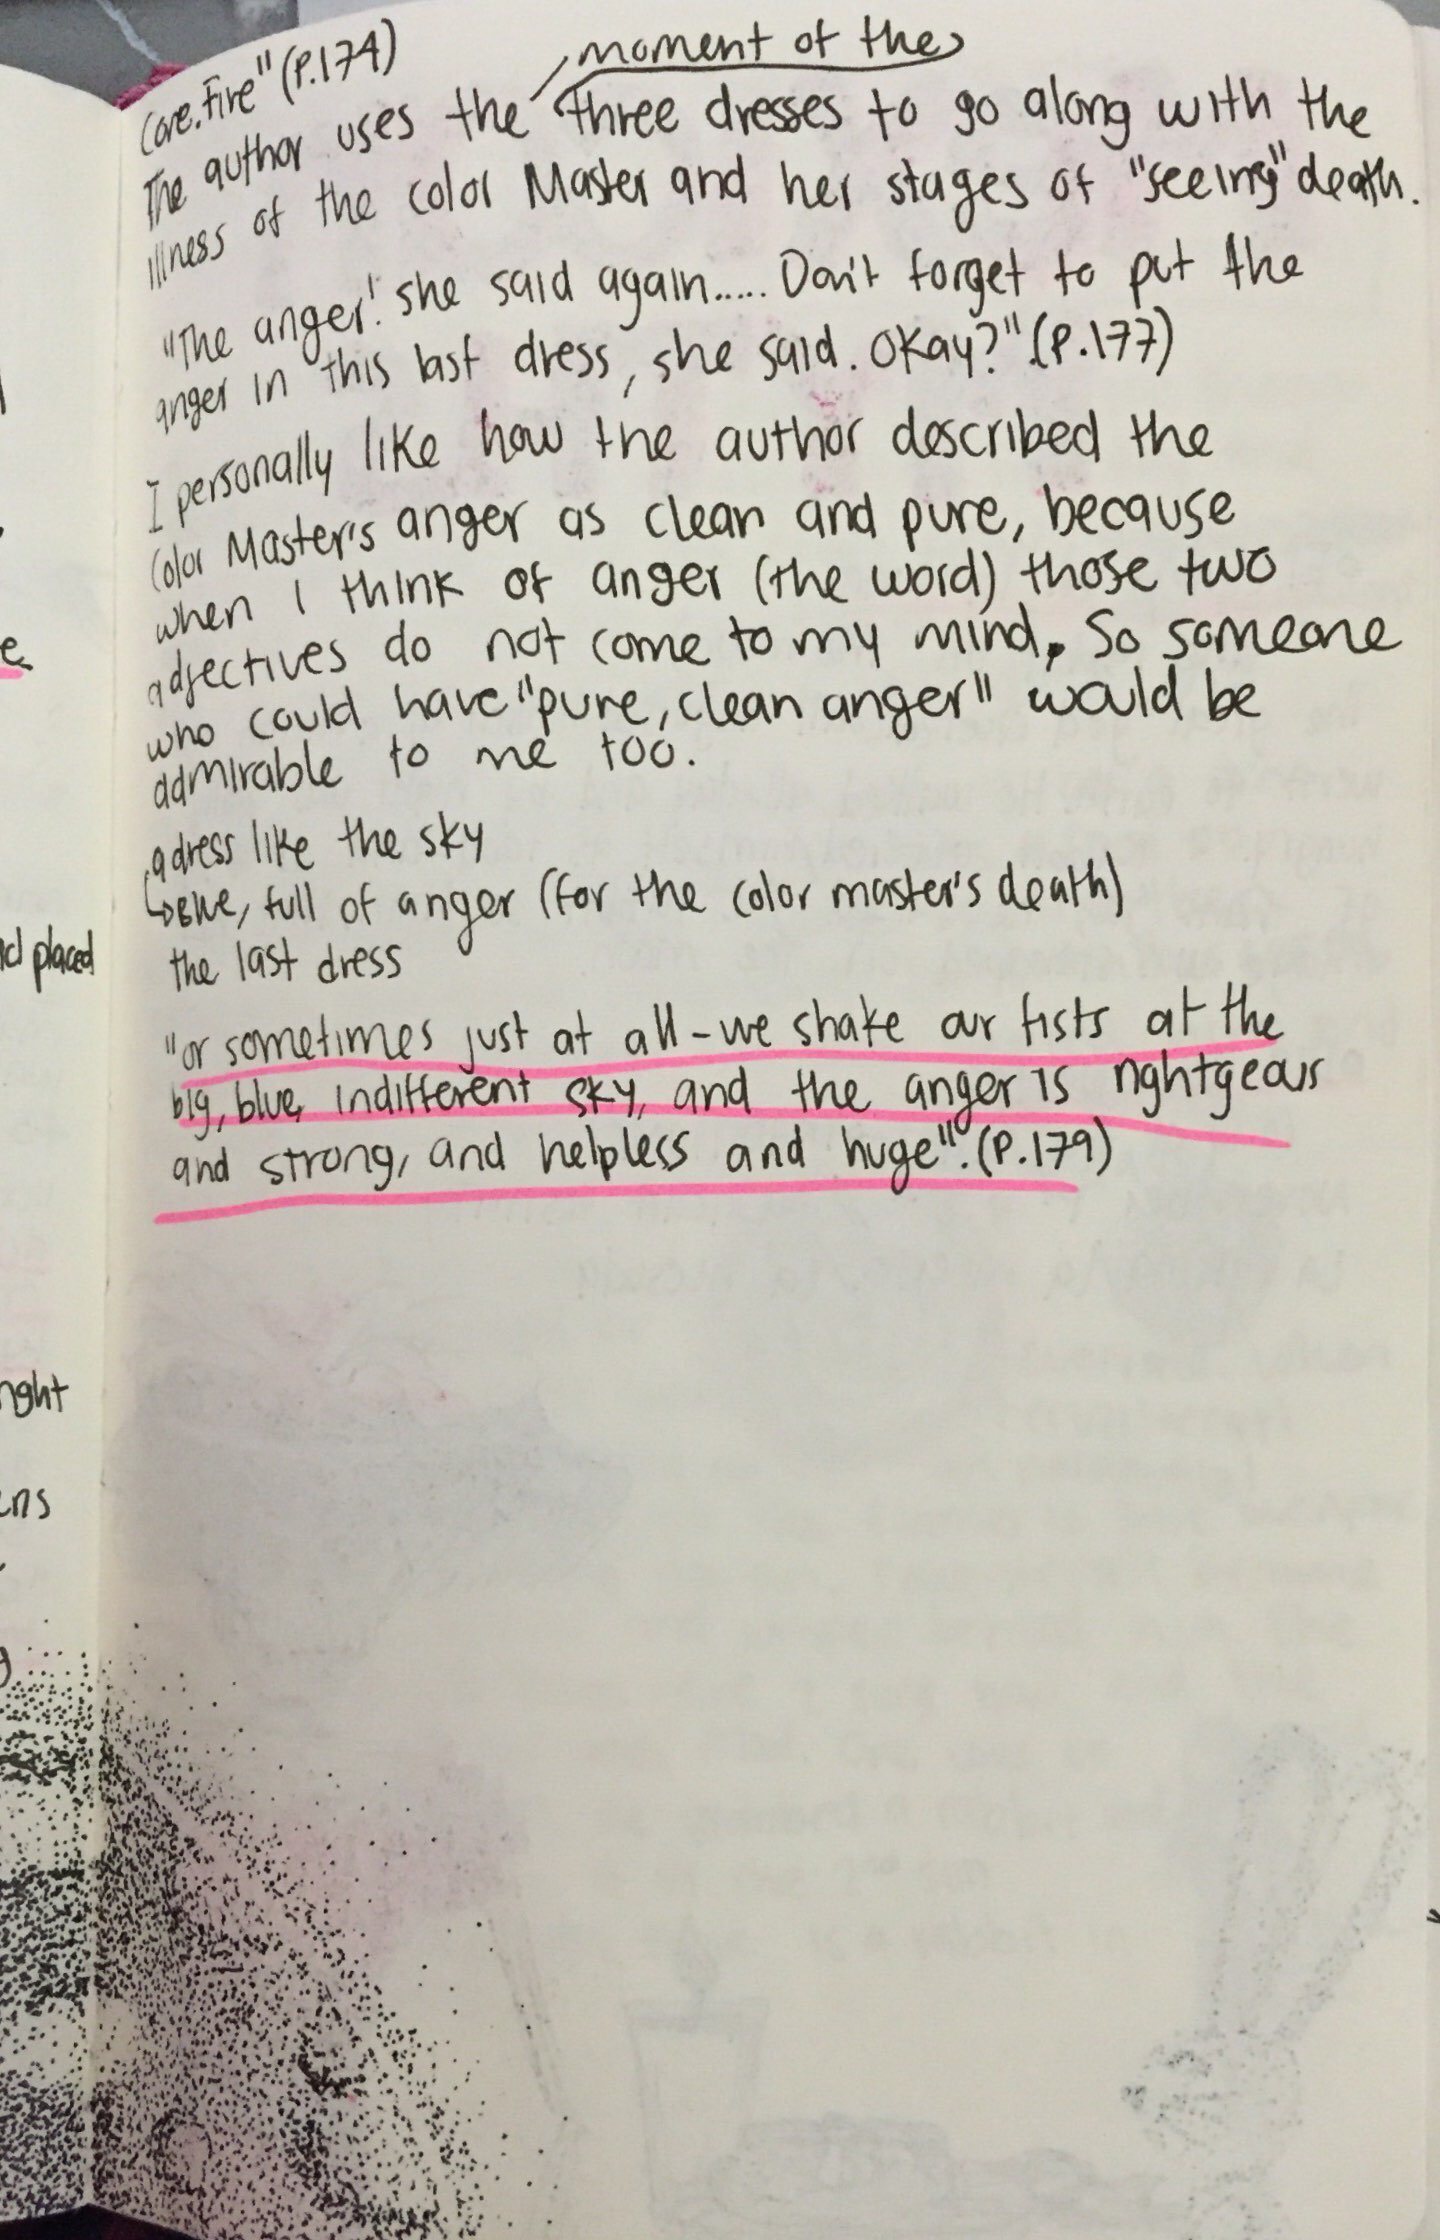 Core. Fire" (P.174)
moment of the
The author uses the three dresses to go along with the
illness of the color Master and her stages of "seeing" death.
"The anger! she said again..... Don't forget to put the
anger in this last dress, she said. Okay?" (P.177)
I personally like how the author described the
Color Master's anger as clean and pure, because
when I think of anger (the word) those two
adjectives do not come to my mind. So someone
who could have "pure, clean anger" would be
admirable to me too.
a dress like the sky
↳ Blue, full of anger (for the color master's death)
the last dress
"or sometimes just at all - we shake our fists at the
big, blue, indifferent sky, and the anger is rightgeous
and strong, and helpless and huge". (P.179)
placed
ght
ns